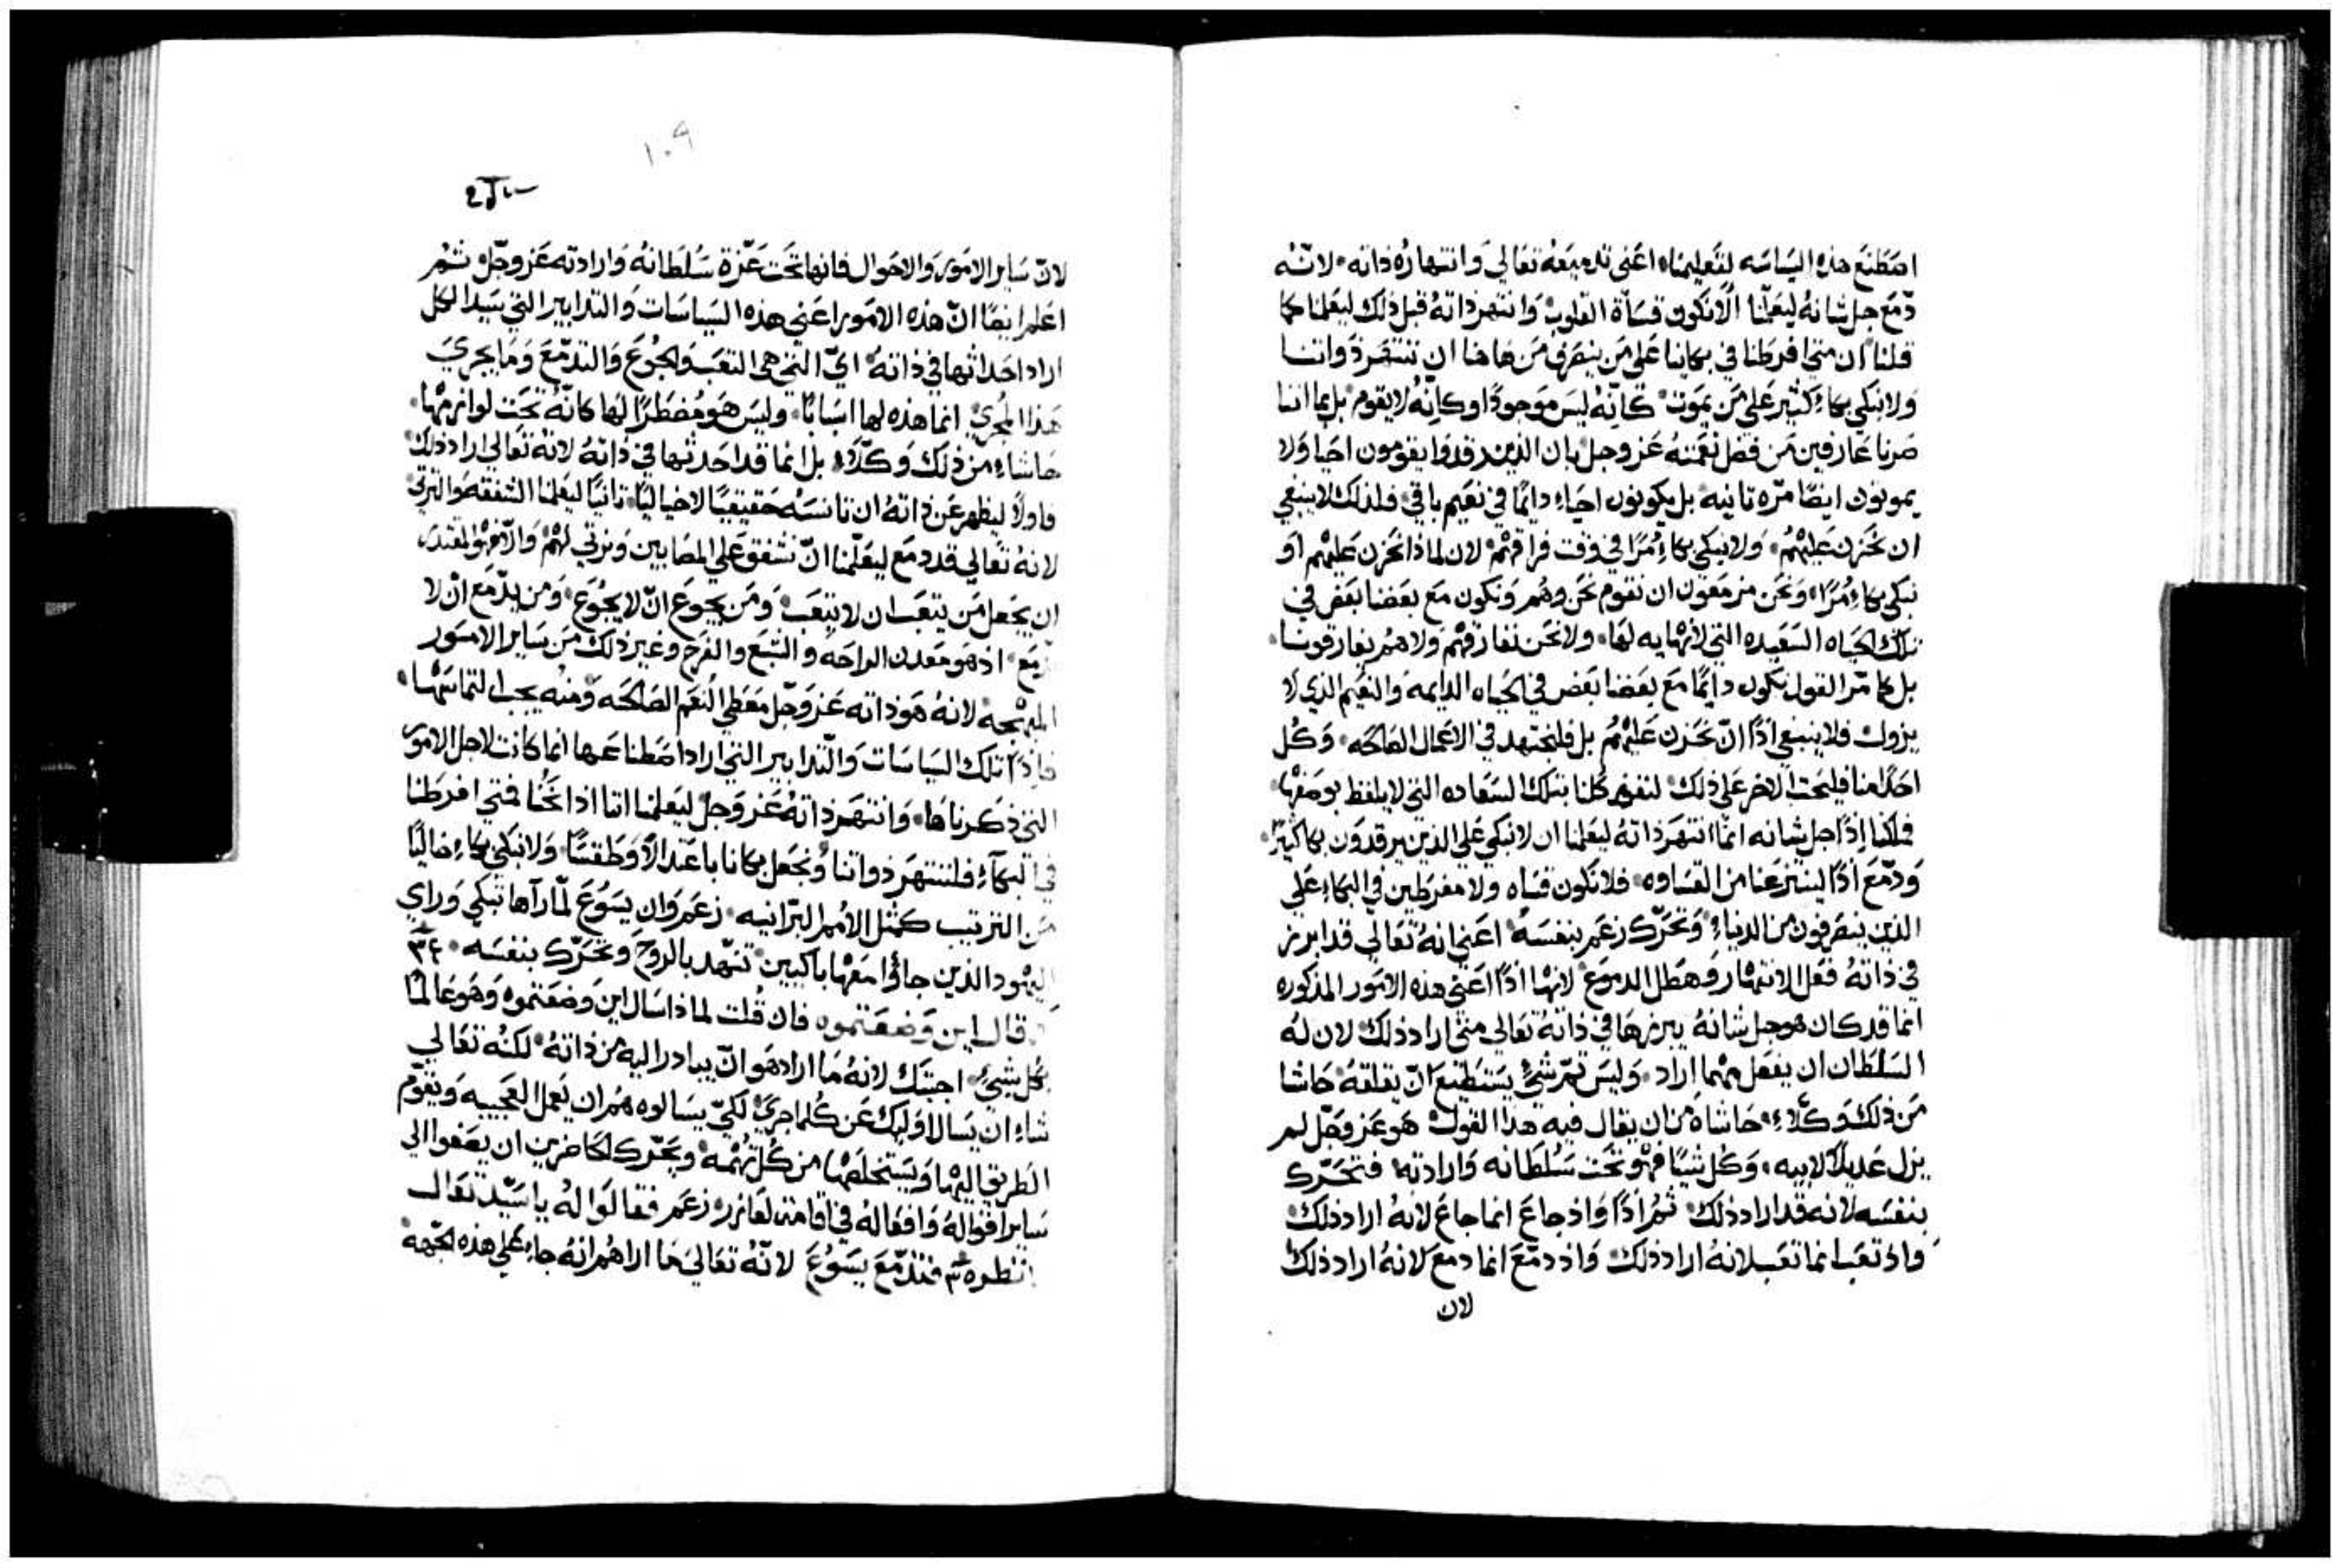 اصطنع هذه السياسه لتعليمنا، اعني تدميعهُ تعالي وانتهارهُ ذاته٠ لانّه
دّمع جل شانهُ ليعلّمنا الّا نكون قساة القلوب٠ وانتهر ذاتهُ قبل ذلك ليعلمنا كما
قلنا ان متي افرطنا في بكانا علي من ينصرف من هاهنا ان ننتهر ذواتنا
ولا نبكي بكاءٍ كثير علي من يموت٠ كانّه ليس موجودًا وكانّه لا يقوم٠ بل بما اننا
صرنا عارفين من فضل نعمتهُ عز وجل بان الذين رقدوا يقومون احيا ولا
يموتون ايضًا مرّه تانيه٠ بل يكونون احياءٍ دايمًا في نعيم باقي٠ فلذلك لا ينبغي
ان نحزن عليهُم٠ ولا نبكي بكاءٍ مُرًا في وقت فراقهُم٠ لان لماذا نحزن عليهُم او
نبكي بكاءٍ مُرًا٠ ونحن مزمعون ان نقوم نحن وهُم ونكون مع بعضنا بعض في
تلك الحياه السعيده التي لا نهايه لها٠ ولا نحن نفارقهُم ولا هُم يفارقونا٠
بل كما مرّ القول نكون دايمًا مع بعضنا بعض في الحياه الدايمه والنعيم الذي لا
يزول فلا ينبغي اذًا انّ نحزن عليهُم بل فلنجتهد في الاعمال الصالحه٠ وكُل
احدًا منا فليحت الاخر علي ذلك٠ لنفوز كُلنا بتلك السعاده التي لا يلفظ بوصفها٠
فملكنا اذًا جل شانه انمّا انتهر ذاتهُ ليعلمنا ان لا نبكي علي الذين يرقدون بكا كثيرًا٠
ودّمع اذًا لينتزعنا من القساوه٠ فلا نكون قساه ولا مفرطين في البكاءِ علي
الذين ينصرفون من الدنياءِ٠ وتحرّك زعم بنفسهُ٠ اعني انهُ تعالي قد ابرز
في ذاتهُ فعل الانتهار وهطل الدموع٠ لانها اذًا اعني هذه الامور المذكوره
انما قد كان هو جل شانهُ يبرزها في ذاتهُ تعالي متي اراد ذلك٠ لان لهُ
السلطان ان يفعل مهما اراد٠ وليس تمّ شيٍ يستطيع انّ يقلقهُ حاشا
من ذلك وكلّاءِ٠ حاشاهُ من ان يقال فيه هذا القول٠ هو عز وجّل لم
يزل عديلًا لابيه٠ وكل شيًا فهُو تحت سُلطانه وارادته٠ فتحرّك
بنفسه لانه قد اراد ذلك٠ ثمُ اذًا واذ جاع انما جاع لانهُ اراد ذلك٠
واذ تعب انما تعب لانهُ اراد ذلك٠ واذ دمّع انما دمع لانهُ اراد ذلك
لان
١٠٩
لانّ ساير الامور والاحوال فانها تحت عزّة سُلطانهُ وارادته عز وجّل٠ ثمُ
اعلم ايضًا انّ هذه الامور اعني هذه السياسات والتدابير التي سيد الكل
اراد احداثها في ذاتهُ٠ ايّ التي هي التعب والجُوع والتدمّع وما يجري
هذا المجري٠ انما هذه لها اسبابًا٠ وليس هو مُضطرًا لها كانّهُ تحت لوازمها٠
حاشاءِ من ذلك وكلّاءِ بل انما قد احدثها في ذاتهُ لانهُ تعالي اراد ذلك
فاولًا ليظهر عن ذاتهُ ان تانسهُ حقيقيًا لا خياليًا٠ تانيًا ليعلمنا الشفقه والترتي
لانهُ تعالي قد دمع ليعلّمنا انّ نشفق علي المصابين ونرتي لهُم٠ والّا فهُو المقتدر
ان يجعل من يتعب ان لا يتعب٠ ومن يجوع انّ لا يجُوع٠ ومن يدّمع انْ لا
يدّمع٠ اذ هو معدن الراحه والشبع والفرح وغير ذلك من ساير الامور
المبهجه٠ لانهُ هو ذاته عز وجّل معطي النعم الصالحه ومنهُ يجب التماسها٠
فاذًا تلك السياسات والتدابير التي اراد اصطناعها انما كانت لاجل الامور
التي ذكرناها٠ وانتهر ذاتهُ عز وجل ليعلمنا اننا اذا نحُنا فمتي افرطنا
في البكآءِ فلننتهر ذواتنا ونجعل بكانا باعتدالًا وطقسًا٠ ولا نبكي بكاءٍ خاليًا
من الترتيب كمثل الأُمم البرّانيه٠ زعم وان يسُوع لمّا رآها تبكي وراي
اليهُود الذين جاؤا معها باكيين٠ تنهّد بالروح وتحرّك بنفسه٠ ٣٤
وقال اين وضعتموه فان قُلت لماذا سال اين وضعتموه وهو عالمًا
بكُل شيٍ٠ اجبتك لانهُ ما اراد هو انّ يبادر اليه من ذاتهُ٠ لكنهُ تعالي
شاءِ ان يسال اوليك عن كُلما جري٠ لكيّ يسالوه هُم ان يعمل العجيبه ويقوّم
الطريق اليها ويستخلصها من كُل تُهمه٠ ويحرّك الحاضرين ان يصغوا الي
ساير اقوالهُ وافعالهُ في اقامته لعازر٠ زعم فقالوا لهُ يا سيّد تعال
انظره٠ ٣٥ فتدّمع يسُوع لانّهُ تعالي ما اراهُم انهُ جاءِ علي هذه الجهه٠